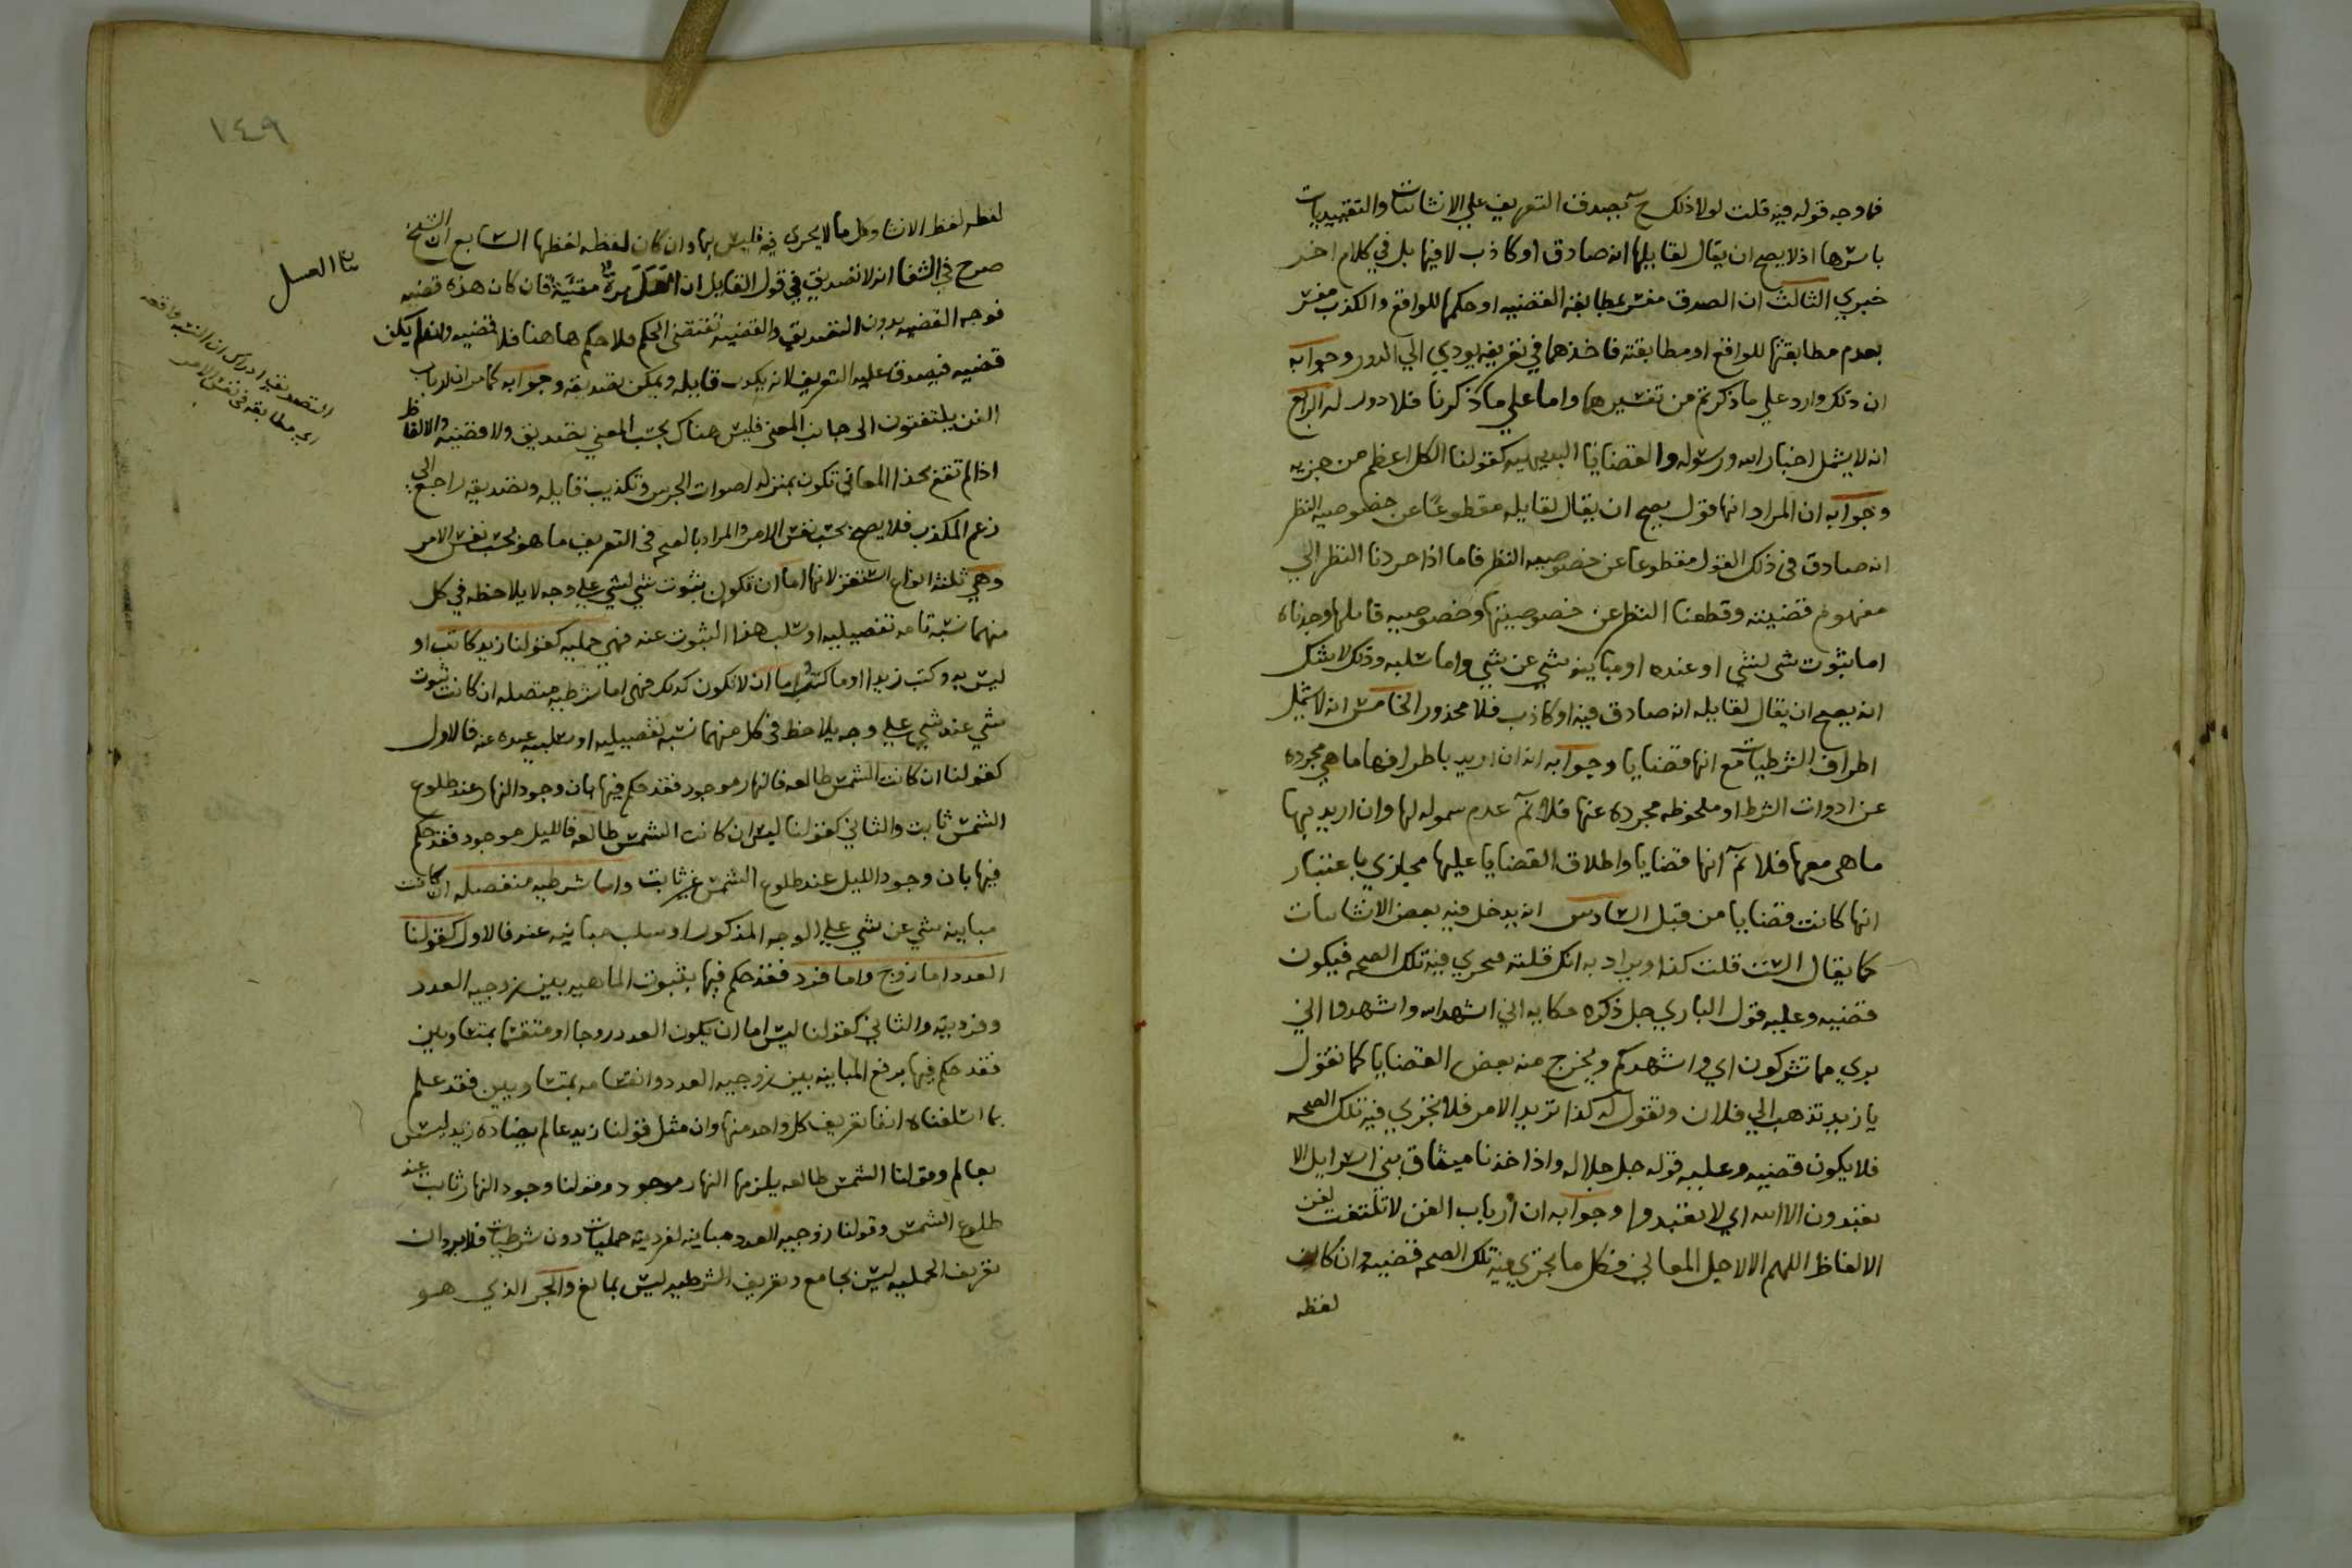 فما وجه قوله فيه قلت لولا ذلك ح بصدق التعريف علي الانشائات والتقييديات
باسرها اذ لا يصح ان يقال لقايلها انه صادق او كاذب لا فيها بل في كلام اخر
خبري الثالث ان الصدق مفسر بمطابقة القضيه او حكمها للواقع والكذب مفسر
بعدم مطابقتها للواقع او مطابقته فاخذهما في تعريفه يودي الي الدور وجوابه
ان ذلك وارد علي ما ذكرتم من تفسيرها واما علي ما ذكرنا فلا دور له الرابع
انه لا يشمل اخبار الله ورسوله والقضايا البديهيه كقولنا الكل اعظم من جزيه
وجوابه ان المراد انها قول يصح ان يقال لقايله مقطوعا عن خصوصيه النظر
انه صادق في ذلك القول مقطوعا عن خصوصيه النظر فاما اذا جردنا النظر الي
مفهوم قضيته وقطعنا النظر عن خصوصيتها وخصوصيه قايلها وجدناه
اما بثوت شي لشي او عنده او مباينه شي عن شي واما سلبه وذلك لا شك
انه يصح ان يقال لقايله انه صادق فيه او كاذب فلا محذور الخامس انه لا يشمل
اطراف الشرطيات مع انها قضايا وجوابه انه ان اريد باطرافها ما هي مجرده
عن ادوات الشرط او ملحوظه مجرده عنها فلا نم عدم سموله لها وان اريد بها
ما هي معها فلا نم انها قضايا واطلاق القضايا عليها مجازي باعتبار
انها كانت قضايا من قبل السادس انه يدخل فيه بعض الانشائات
كما يقال الست قلت كذا ويراد به انك قلته فيجري فيه تلك الصحه فيكون
قضيه وعليه قول الباري جل ذكره حكايه اني اشهد الله واشهدوا اني
بري مما تشركون اي واشهدكم ويخرج منه بعض القضايا كما تقول
يا زيد تذهب الي فلان وتقول له كذا تريد الامر فلا يجري فيه تلك الصحه
فلا يكون قضيه وعليه قوله جل جلاله واذ اخذنا ميثاق بني اسرايل الا
تعبدون الا الله اي لا تعبدوا وجوابه ان ارباب الفن لا تلتفت لفن
الالفاظ اللهم الا لاجل المعاني فكل ما يجري فيه تلك الصحه قضيه وان كان
لفظه
١٤٩
لفظه لفظ الانشا وكل ما لا يجري فيه فليس بها وان كان لفظه لفظها السابع ان الشيخ
صرح في الشفا انه لا تصديق في قول القايل ان العسل مرة مقيئة فان كان هذه قضيه
فوجه القضيه بدون التصديق والقضيه تقتضي الحكم فلا حكم هاهنا فلا قضيه وان لم يكن
قضيه فيصدق عليه التعريف لانه يكذب قايله ويمكن تصديقه وجوابه كما مر ان ارباب
الفن يلتفتون الي جانب المعني فليس هناك بحسب المعني تصديق ولا قضيه والالفاظ
اذا لم تقع بحذا المعاني تكون بمنزله اصوات الجرس وتكذيب قايله وتصديقه راجع الي
زعم المكذب فلا يصح بحسب نفس الامر والمراد بالصحه في التعريف ما هو بحسب نفس الامر
وهي ثلثه انواع لانها اما ان تكون بثبوت شي لشي علي وجه لا يلاحظ في كل
منهما نسبة تامه تفصيليه او سلب هذا الثبوت عنه فهي حمليه كقولنا زيد كاتب او
ليس به وكتب زيد او ما كتب واما ان لا تكون كذلك فهي اما شرطيه متصله ان كانت ثبوت
شي عند شي علي وجه يلاحظ في كل منهما نسبه تفصيليه او سلبيه عنده عنه فالاول
كقولنا ان كانت الشمس طالعه فالنهار موجود فقد حكم فيها بان وجود النهار عند طلوع
الشمس ثابت والثاني كقولنا ليس ان كانت الشمس طالعه فالليل موجود فقد حكم
فيها بان وجود الليل عند طلوع الشمس غير ثابت واما شرطيه منفصله ان كانت
مباينه شي عن شي علي الوجه المذكور او سلب مباينه عنه فالاول كقولنا
العدد اما زوج واما فرد فقد حكم فيها بثبوت المباينه بين زوجيه العدد
وفرديته والثاني كقولنا ليس اما ان يكون العدد زوجا او منقسما بمتساويين
فقد حكم فيها برفع المباينه بين زوجيه العدد وانقسامه بمتساويين فقد علم
بما اسلفناه انفا تعريف كل واحد منها وان مثل قولنا زيد عالم يضاده زيد ليس
بعالم وقولنا الشمس طالعه يلزمها النهار موجود وقولنا وجود النهار ثابت عند
طلوع الشمس وقولنا زوجيه العدد مباينه لفرديته حمليات دون شرطيات فلا يرد ان
تعريف الحمليه ليس بجامع وتعريف الشرطيه ليس بمانع والجز الذي هو
العسل
التصديق ادراك ان النسبه واقعه
اي مطابقه في نفس الامر